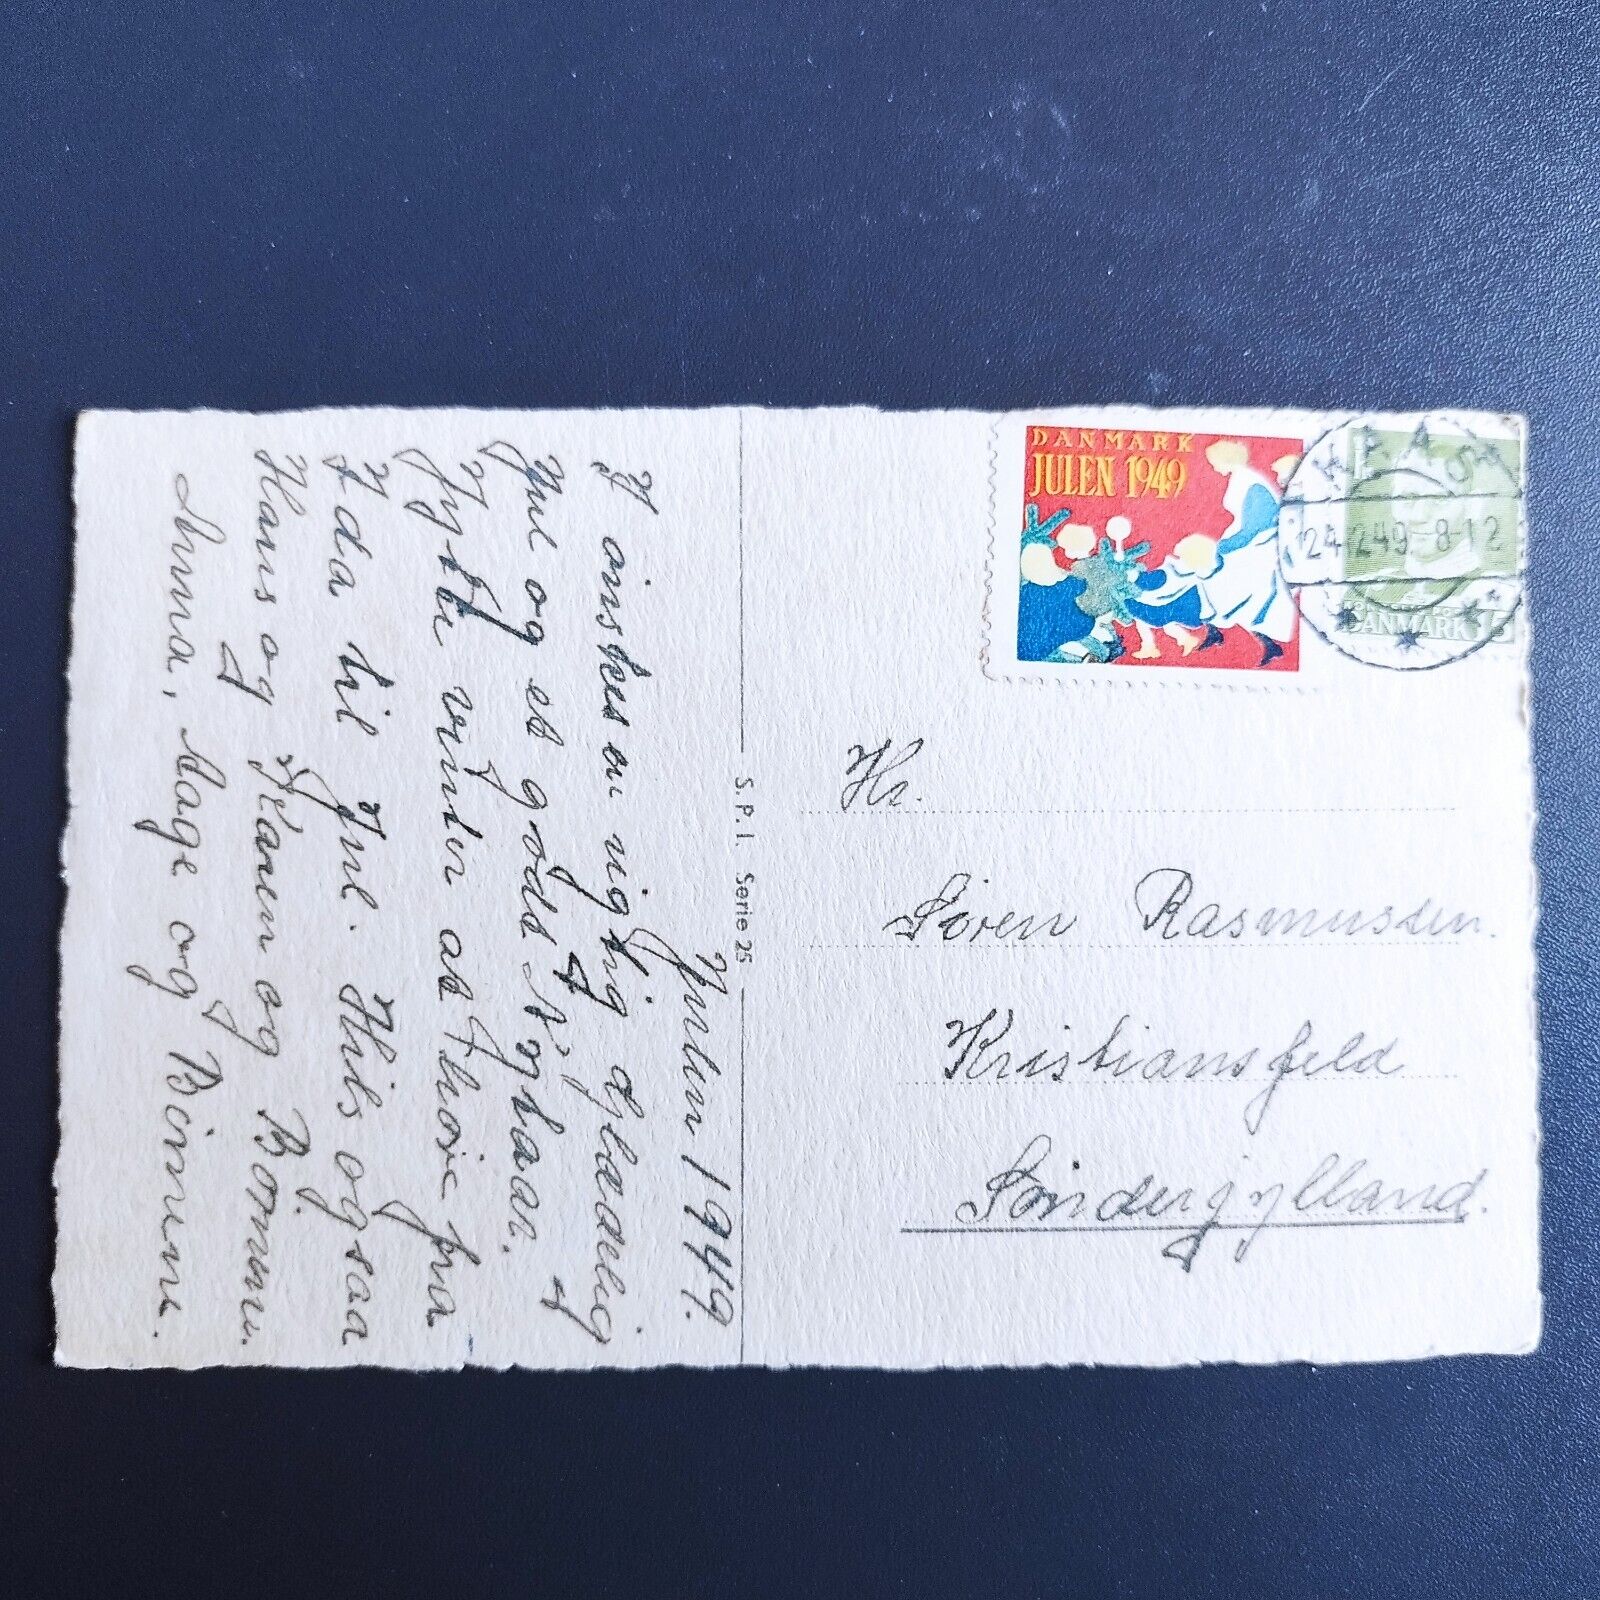 Julen 1949.
I ønskes en rigtig glædelig
Jul og et godt Nytaar.
I
at høre fra
Ida til Jul. Hils ogsaa
Hans og Karen og Børnene.
Anna, Aage og Börnene.
S.P.I. Serie 25
DANMARK
JULEN 1949
24.12.49. 8-12
DANMARK 15
Hr.
Sören Rasmussen.
Kristiansfeld
Sönderjylland.